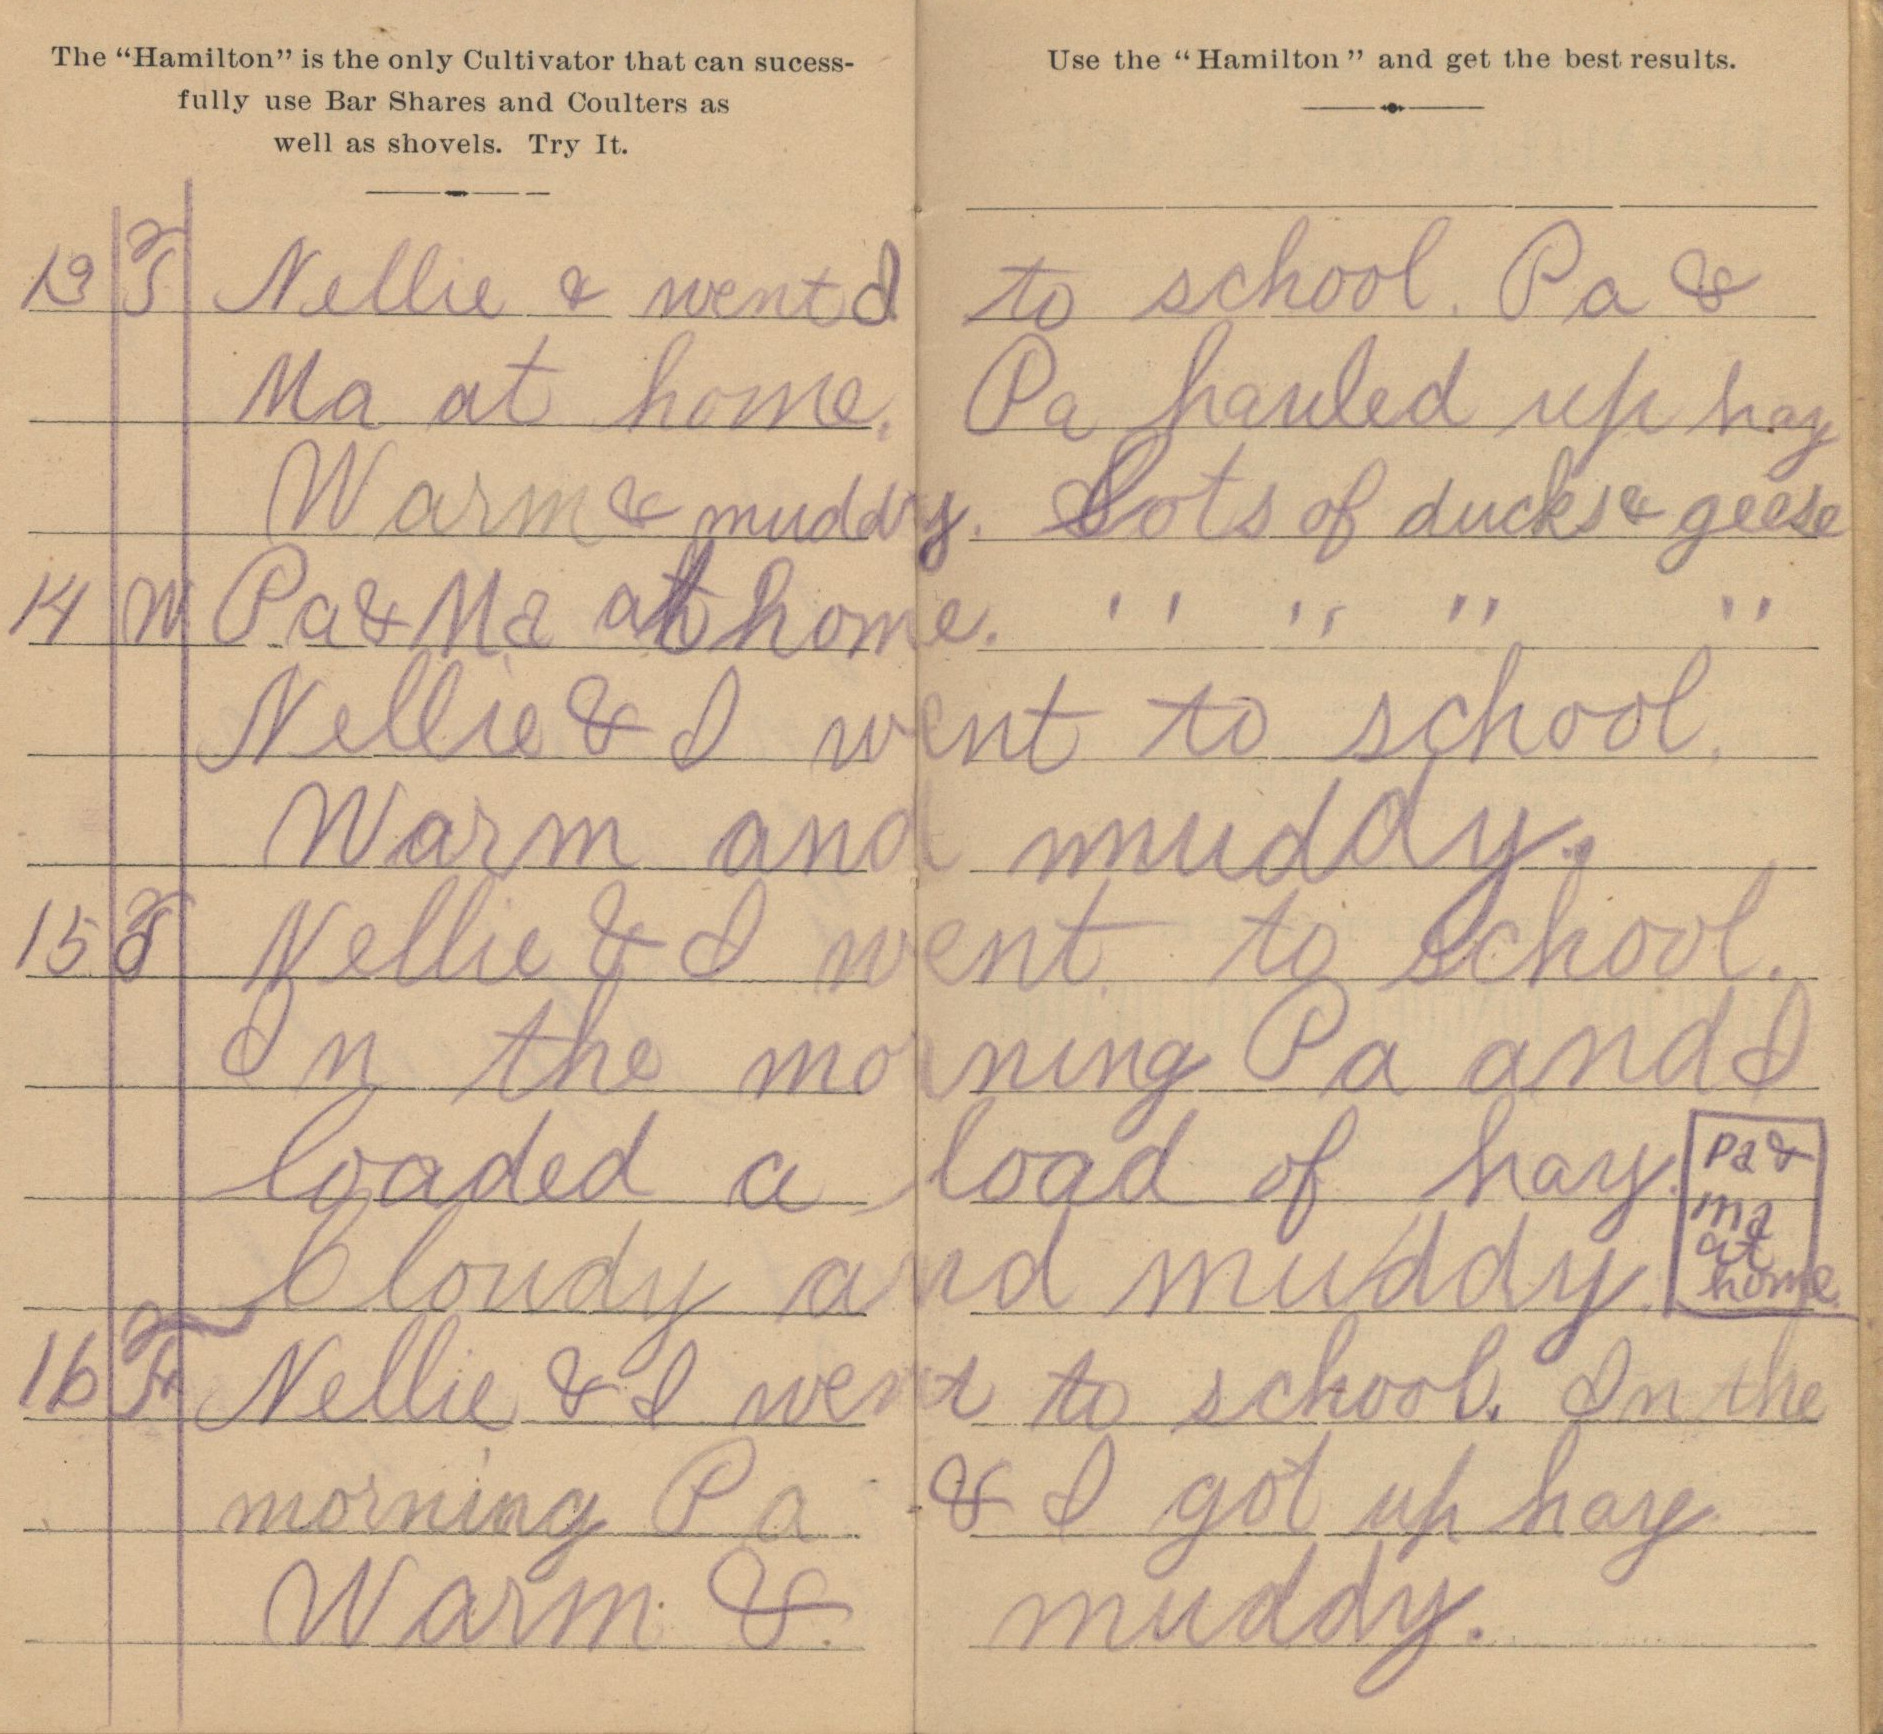 The "Hamilton" is the only Cultivator that can sucess-
fully use Bar Shares and Coulters as
well as shovels. Try It.
Use the "Hamilton" and get the best results.
13 T Nellie & went I to school. Pa &
Ma at home. Pa hauled up hay
Warm & muddy. Lots of ducks & geese
14 W Pa & Ma at home. " " " "
Nellie & I went to school.
Warm and muddy.
15 T Nellie & I went to school.
In the morning Pa and I
loaded a load of hay.
Cloudy and muddy.
Pa &
Ma
at
home.
16 Fr Nellie & I went to school. In the
morning Pa & I got up hay.
Warm & muddy.